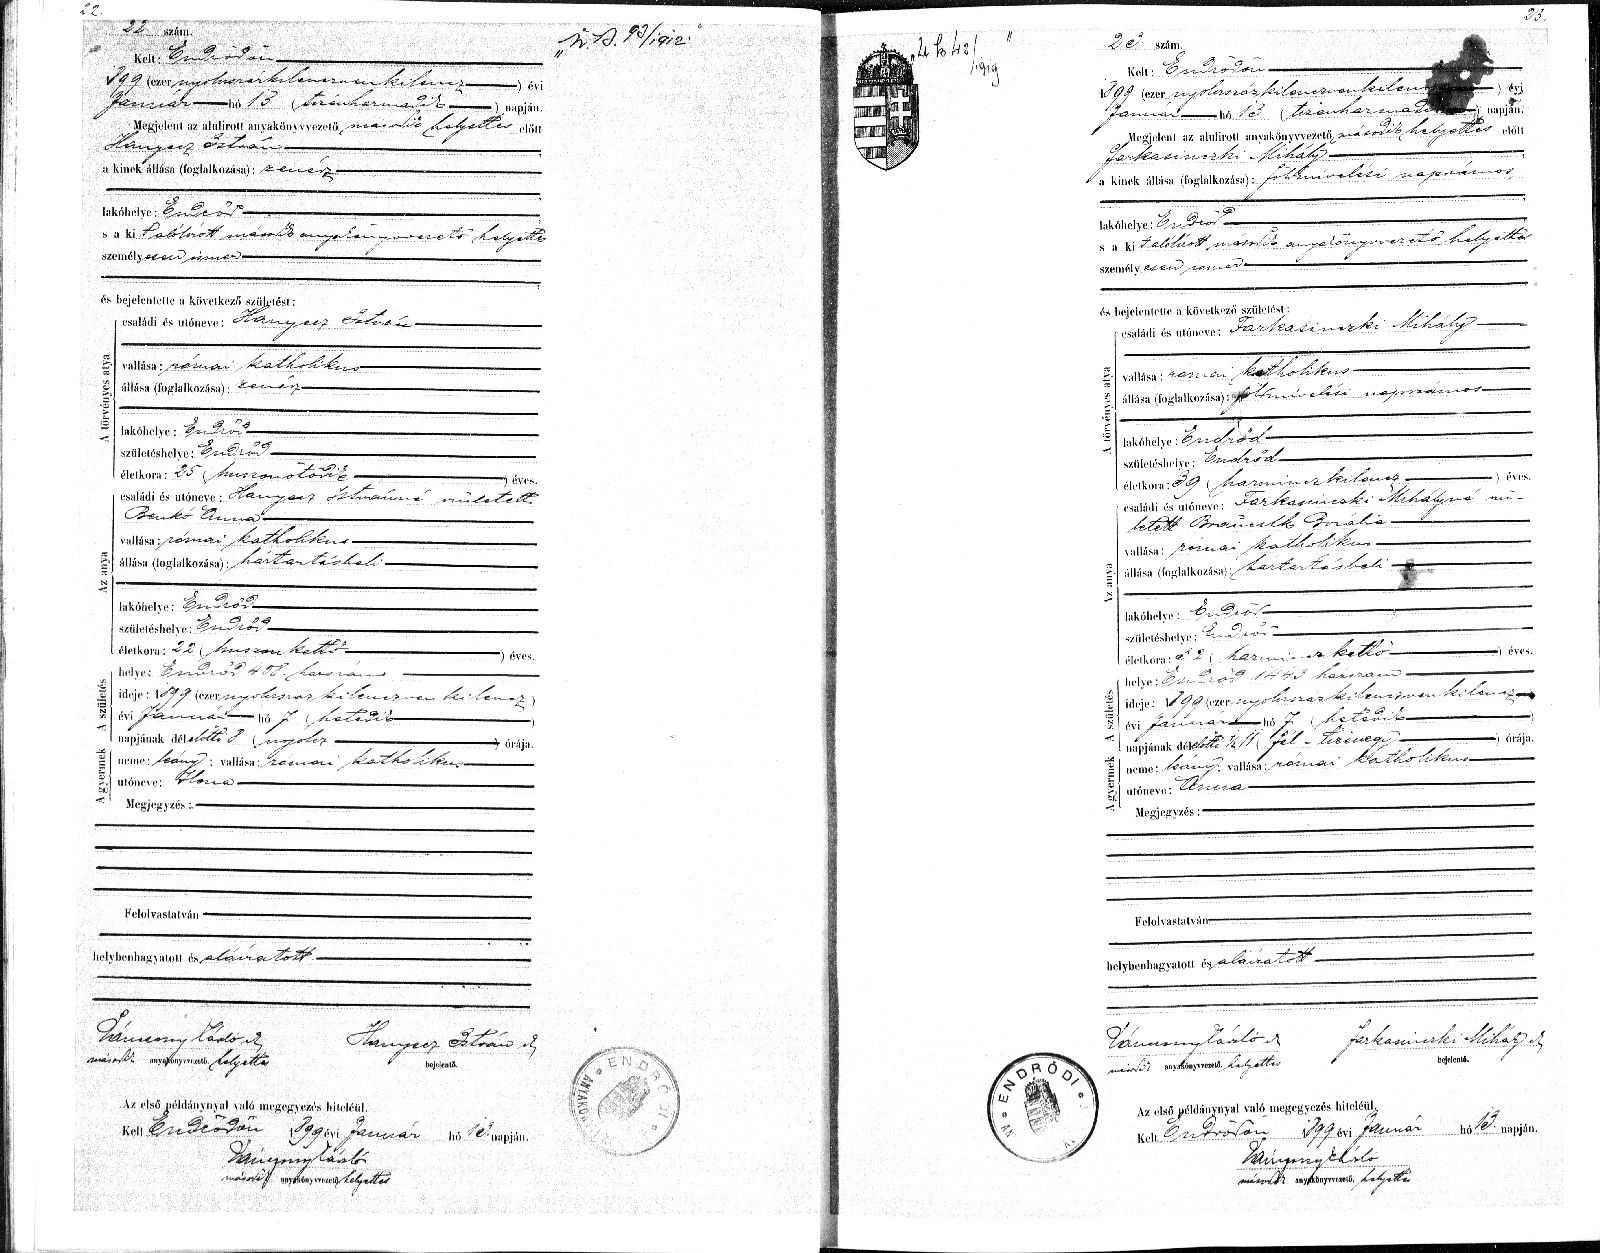 22.
22 szám.
„U. B. 93/1912"
Kelt: Endrődön
1899 (ezer nyolcszázkilenczvenkilencz) évi
Január hó 13 (tizenharmadik) napján.
Megjelent az alulirott anyakönyvvezető második helyettes előtt
Hanyecz István
a kinek állása (foglalkozása): zenész
lakóhelye: Endrőd
s a kit alólirott második anyakönyvvezető helyettes
személyesen ismer
és bejelentette a következő születést:
A törvényes atya
családi és utóneve: Hanyecz István
vallása: római katholikus
állása (foglalkozása): zenész
lakóhelye: Endrőd
születéshelye: Endrőd
életkora: 25 (huszonötödik) éves.
Az anya
családi és utóneve: Hanyecz Istvánné született
Benkó Anna
vallása: római katholikus
állása (foglalkozása): háztartásbeli
lakóhelye: Endrőd
születéshelye: Endrőd
életkora: 22 (huszonkettő) éves.
A születés
helye: Endrőd 408. házszám
ideje: 1899 (ezer nyolcszázkilenczvenkilencz)
évi Január hó 7 (hetedik)
napjának délelőtti 8 (nyolcz) órája.
A gyermek
neme: leány; vallása: római katholikus
utóneve: Ilona
Megjegyzés:
Felolvastatván
helybenhagyatott és aláiratott
Hanyecz István
második anyakönyvvezető helyettes
bejelentő.
Az első példánynyal való megegyezés hiteléül.
Kelt Endrődön 1899 évi Január hó 13. napján.
második anyakönyvvezető helyettes
ENDRŐDI
23.
23 szám.
Kelt: Endrődön
1899 (ezer nyolcszázkilenczvenkilencz) évi
Január hó 13 (tizenharmadik) napján.
Megjelent az alulirott anyakönyvvezető második helyettes előtt
Farkasinszki Mihály
a kinek állása (foglalkozása): földmivelési napszámos
lakóhelye: Endrőd
s a kit alólirott második anyakönyvvezető helyettes
személyesen ismer
és bejelentette a következő születést:
A törvényes atya
családi és utóneve: Farkasinszki Mihály
vallása: római katholikus
állása (foglalkozása): földmivelési napszámos
lakóhelye: Endrőd
születéshelye: Endrőd
életkora: 39 (harminczkilencz) éves.
Az anya
családi és utóneve: Farkasinszki Mihályné szü-
letett
vallása: római katholikus
állása (foglalkozása): háztartásbeli
lakóhelye: Endrőd
születéshelye: Endrőd
életkora: 32 (harminczkettő) éves.
A születés
helye: Endrőd 1443 házszám
ideje: 1899 (ezer nyolcszázkilenczvenkilencz
évi Január hó 7 (hetedik)
napjának délelőtti ½11 (fél-tizenegy) órája.
A gyermek
neme: leány; vallása: római katholikus
utóneve: Anna
Megjegyzés:
Felolvastatván
helybenhagyatott és aláiratott
Farkasinszki Mihály
második anyakönyvvezető helyettes
bejelentő.
Az első példánynyal való megegyezés hiteléül.
Kelt Endrődön 1899 évi Január hó 13. napján.
második anyakönyvvezető, helyettes
ENDRŐDI